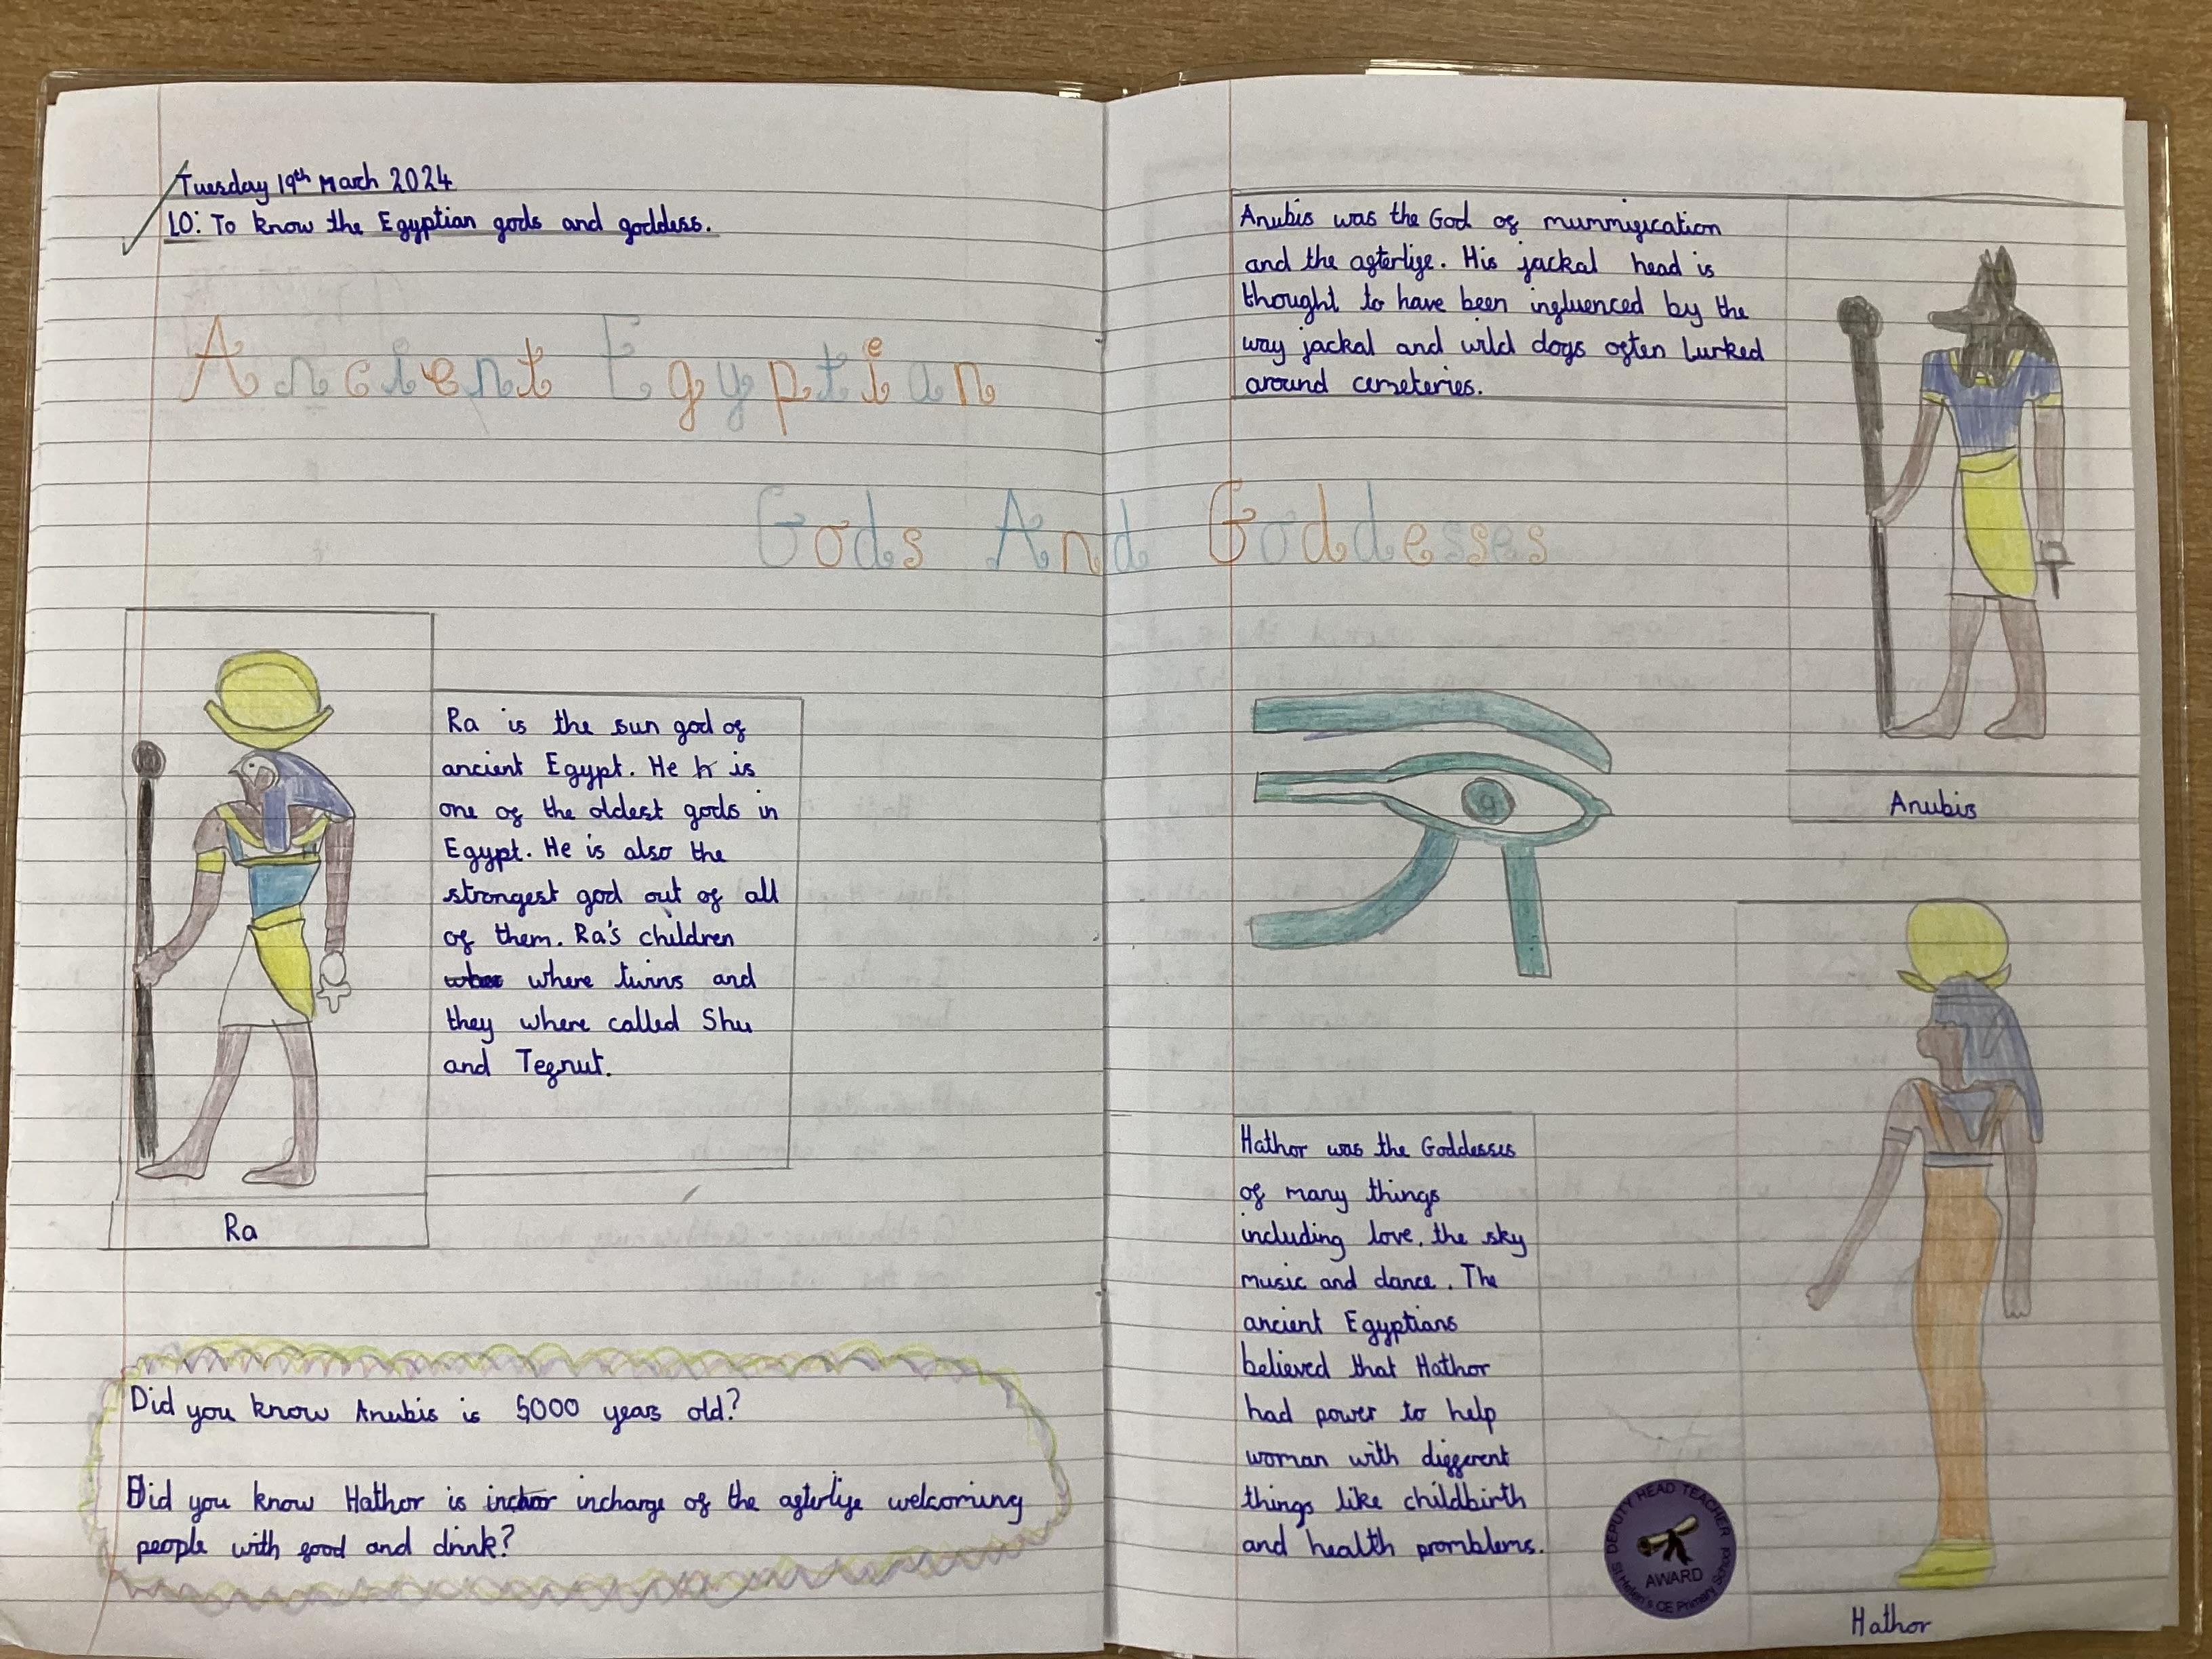 Tuesday 19th March 2024
LO: To know the Egyptian gods and goddess.
Ancient Egyptian
Gods And Goddesses
Ra is the sun god of
ancient Egypt. He is
one of the oldest gods in
Egypt. He is also the
strongest god out of all
of them. Ra's children
where twins and
they where called Shu
and Tefnut.
Ra
Did you know Anubis is 5000 years old?
Did you know Hathor is incharge of the afterlife welcoming
people with food and drink?
Anubis was the God of mummification
and the afterlife. His jackal head is
thought to have been influenced by the
way jackal and wild dogs often lurked
around cemeteries.
Anubis
Hathor was the Goddesses
of many things
including love, the sky
music and dance. The
ancient Egyptians
believed that Hathor
had power to help
woman with different
things like childbirth
and health promblems.
Hathor
DEPUTY HEAD TEACHER
AWARD
St Helen's CE Primary School